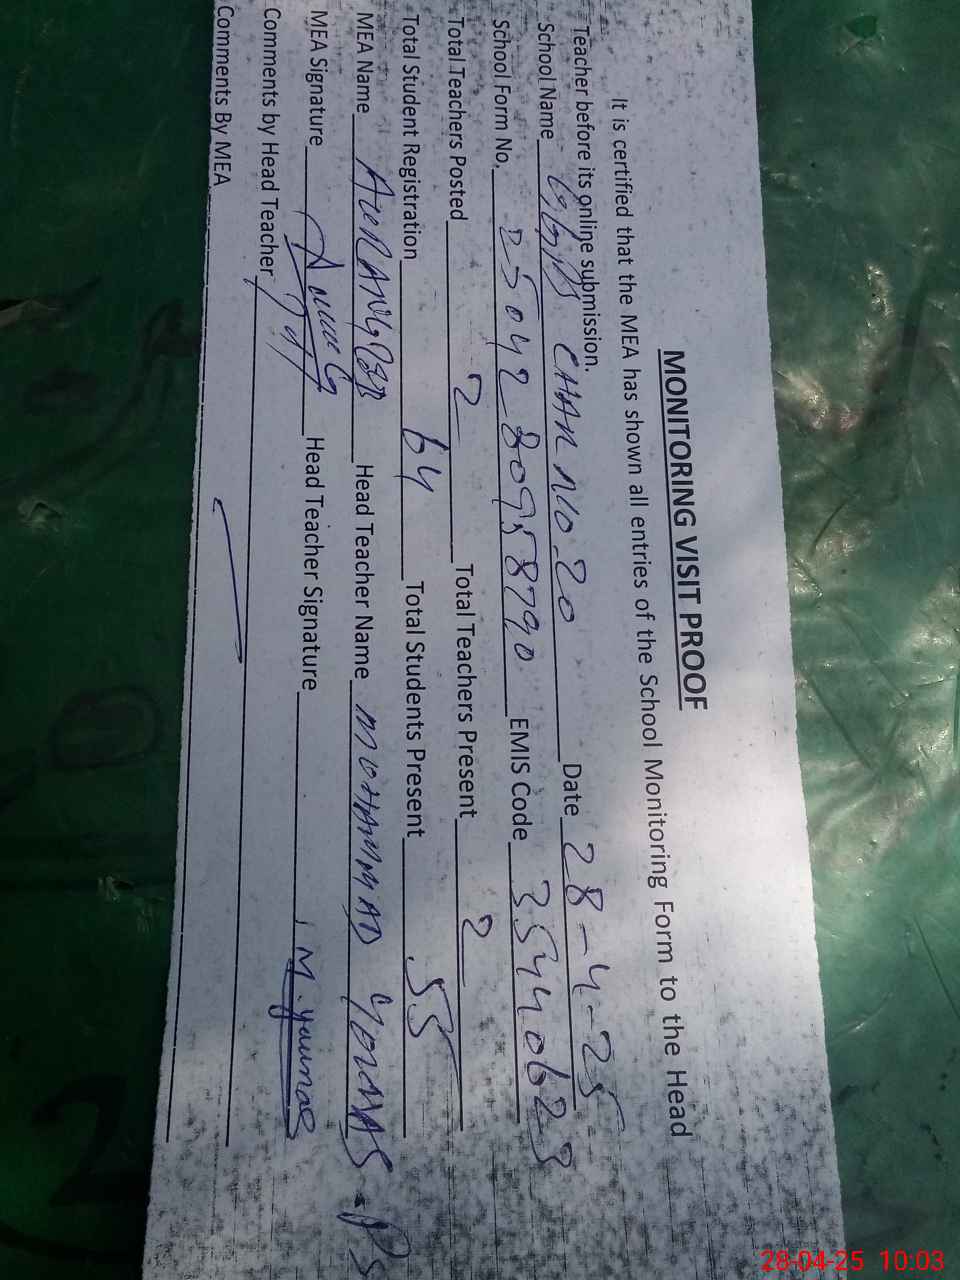 MONITORING VISIT PROOF
It is certified that the MEA has shown all entries of the School Monitoring Form to the Head
Teacher before its online submission.
School Name CHAK NO. 20 Date 28-4-25
School Form No. 2504280958790 EMIS Code 35440623
Total Teachers Posted 2 Total Teachers Present 2
Total Student Registration 64 Total Students Present 55
MEA Name AURANGZEB Head Teacher Name MUHAMMAD YOUNAS
MEA Signature Head Teacher Signature M. younas
Comments by Head Teacher
Comments By MEA
28-04-25 10:03